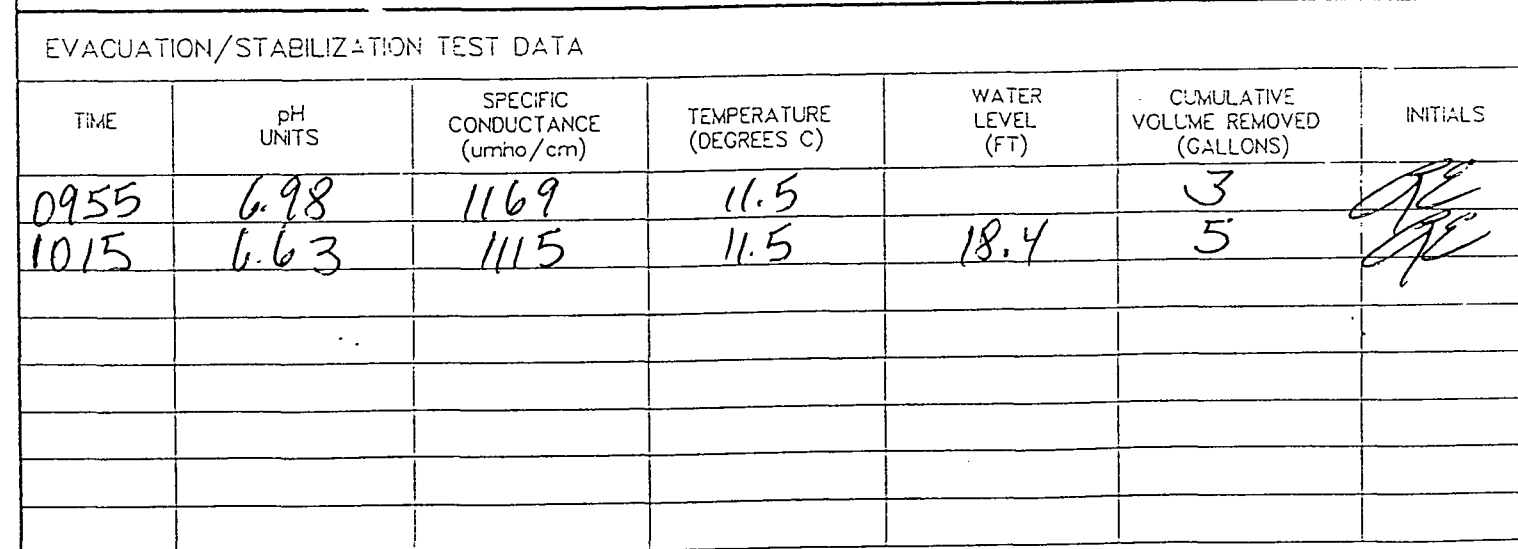 EVACUATION/STABILIZATION TEST DATA
TIME pH UNITS SPECIFIC CONDUCTANCE (umho/cm) TEMPERATURE (DEGREES C) WATER LEVEL (FT) CUMULATIVE VOLUME REMOVED (GALLONS) INITIALS
0955 6.98 1169 11.5 3
1015 6.63 1115 11.5 18.4 5